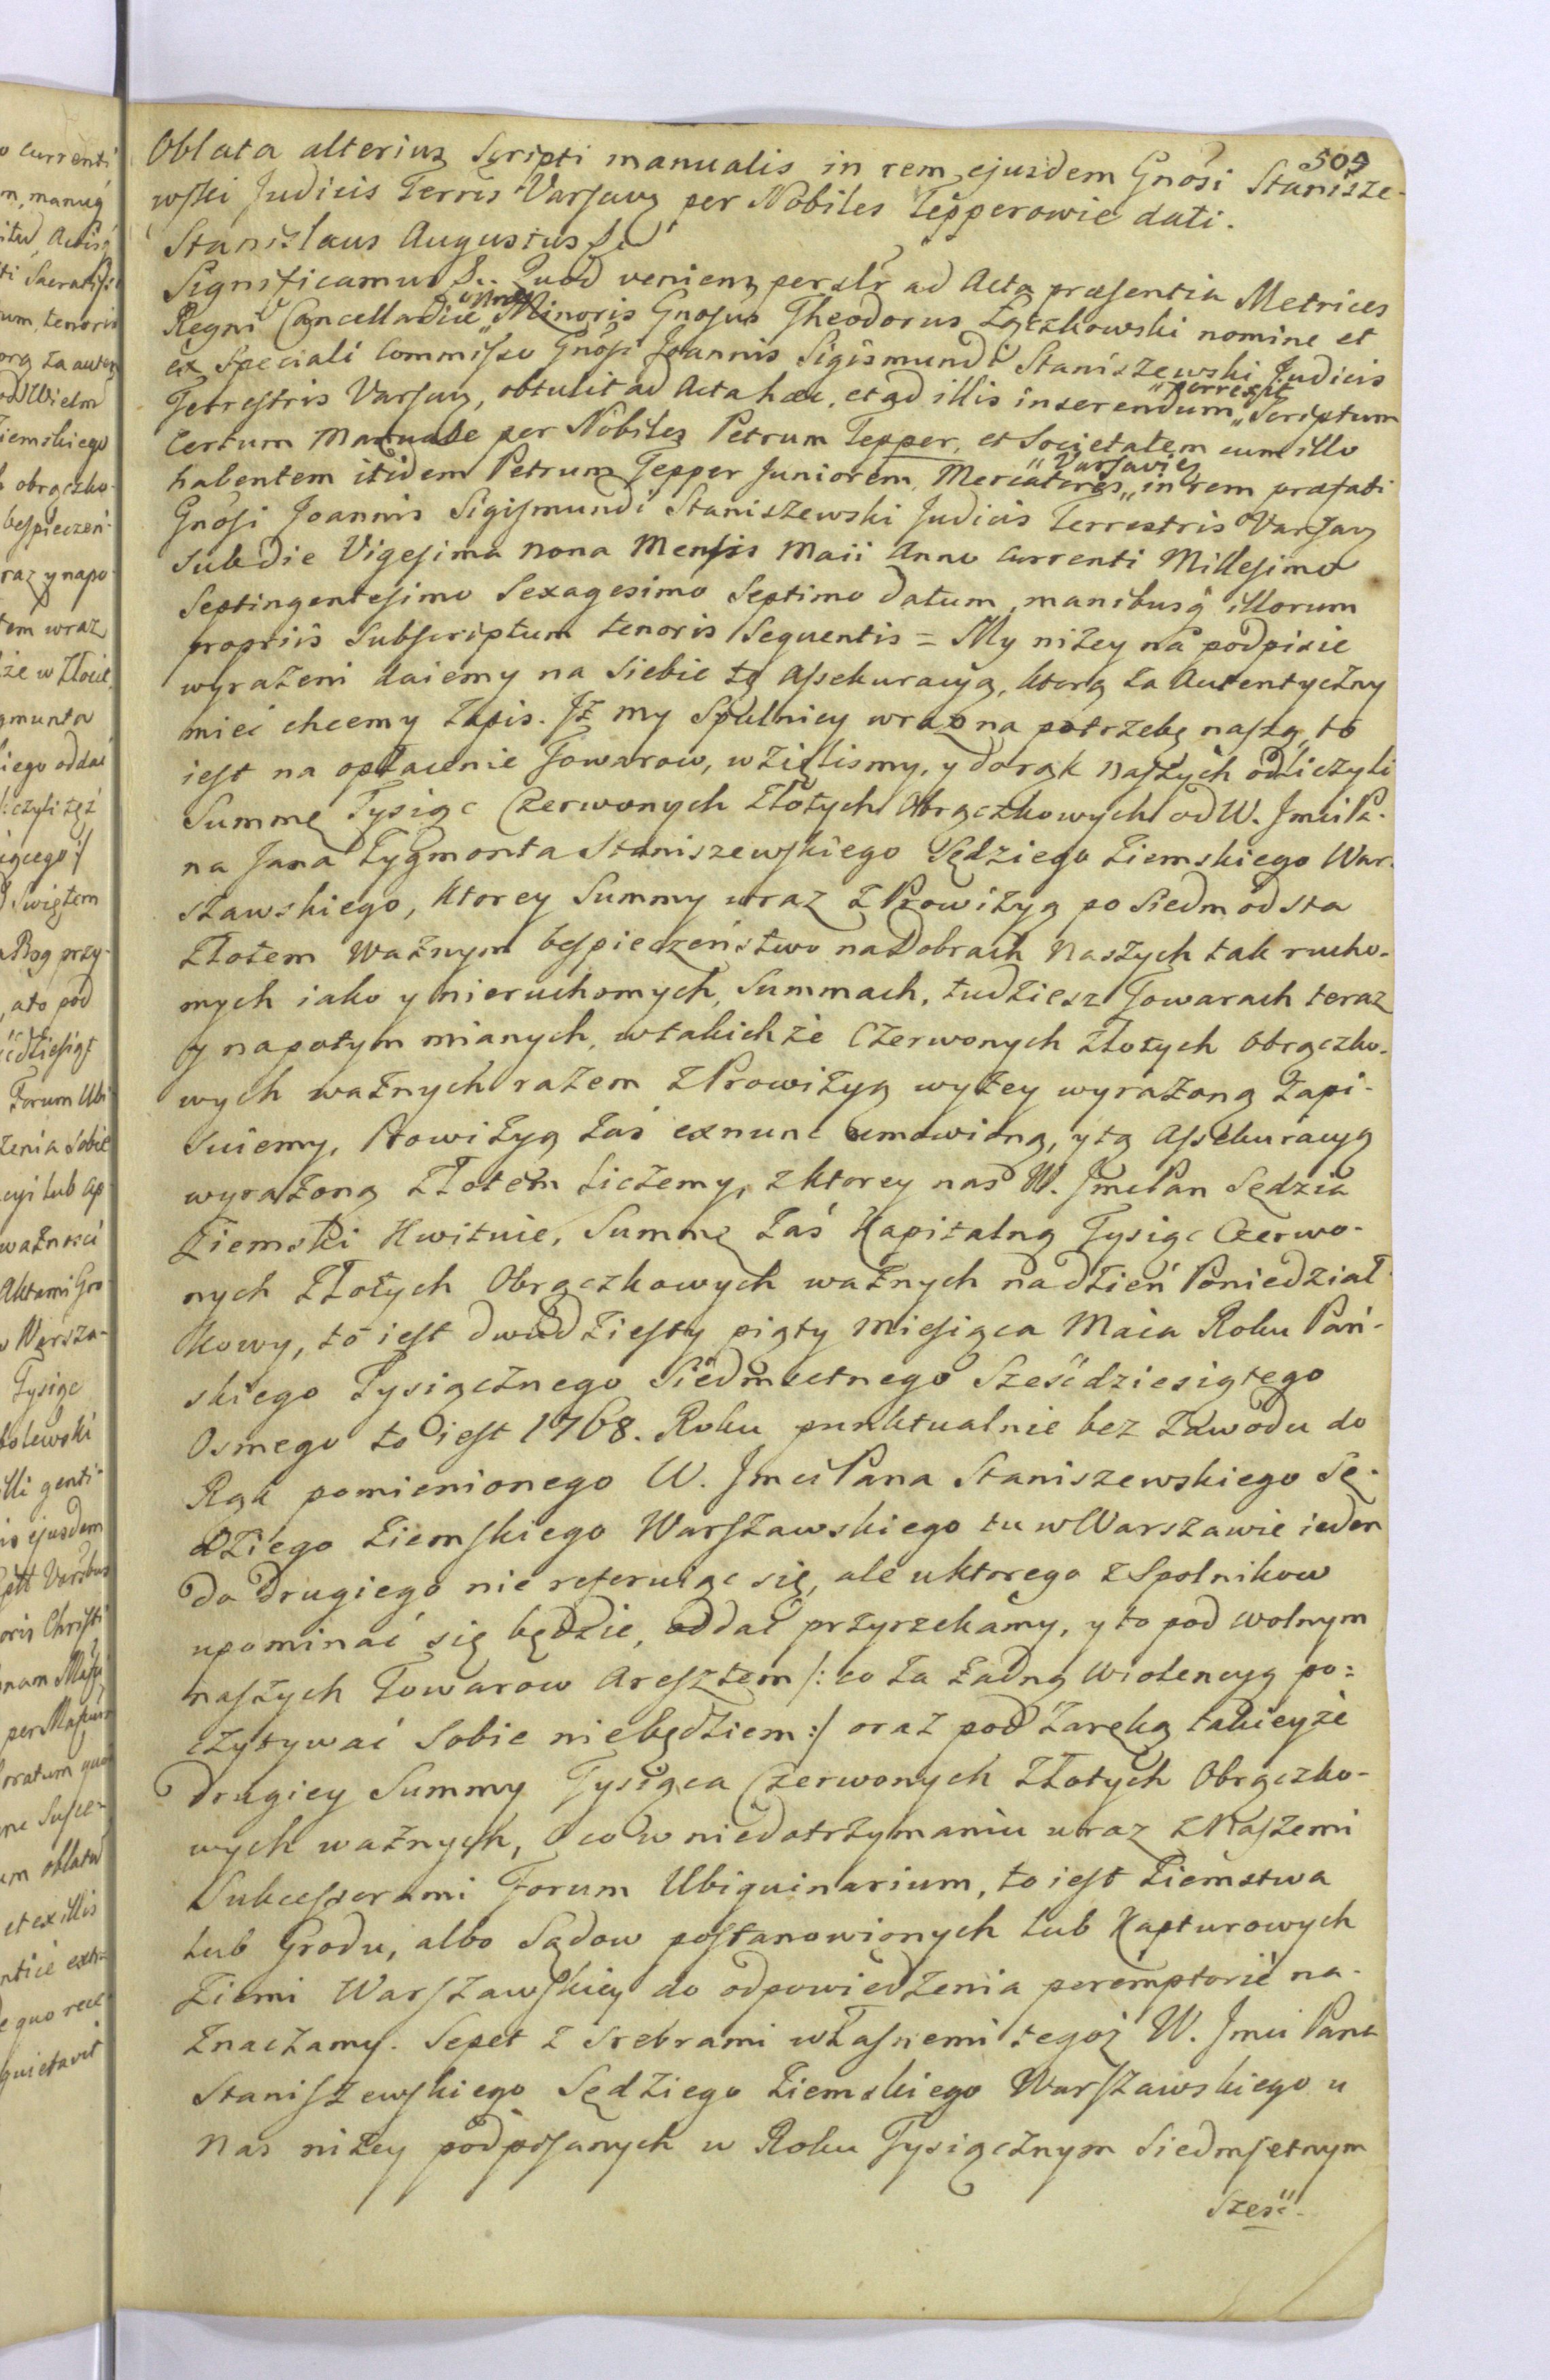 509
Oblata alterius Scripti manualis in rem ejusdem Gnosi Stanisze-
wski Judicis Terris Varsav per Nobiles Tepperowie dati.
Stanislaus Augustus &c.
Significamus &.. Quod veniens persltr ad Acta præsentia Metrices
Regni Cancellariæ Minoris Gnosus Theodorus Łączkowski nomine et
ex Speciali Commisso Gnosi Joannis Sigismundi Staniszewski Judicis
Terrestris Varsav, obtulit ad Acta hæc, et ad illis inserendum „porrexit„ Scriptum
Certum Manuale per Nobiles Petrum Tepper, et Societatem cum illo
habentem itidem Petrum Tepper Juniorem Mercatores „Varsavies„ in rem præfati
Gnosi Joannis Sigismundi Staniszewski Judicis Terrestris Varsav
sub die Vigesima nona Mensis Maii Anno Currenti Millesimo
Septingentesimo Sexagesimo Septimo datum, manibusq illorum
propriis Subscriptum tenoris Sequentis = My niżey na podpisie
wyrażeni daiemy na Siebie tę Assekuracyą, ktorą za Autentyczny
mieć chcemy Zapis. Iż my Spulnicy wraz na potrzebę naszą, to
iest na opłacenie Towarow, wzięlismy, y do rąk Naszych odliczyli
Summę Tysiąc Czerwonych Złotych Obrączkowych od W. Jmci Pa-
na Jana Zygmonta Staniszewskiego Sędziego Ziemskiego War-
szawskiego, ktorey Summy wraz z Prowizyą po Siedm od sta
Złotem ważnym bespieczeństwo na Dobrach Naszych tak rucho-
mych iako y nieruchomych, Summach, tudziesz Towarach teraz
y napotym mianych, w takichże Czerwonych Złotych Obrączko-
wych ważnych razem z Prowizyą wyżey wyrażoną Zapi-
suiemy, Prowizyą zaś ex nunc umowioną, y tą Assekuracyą
wyrażoną Złotem liczemy, z ktorey nas W. Jmc Pan Sędzia
Ziemski Kwituie, Summę zaś Kapitalną Tysiąc Czerwo-
nych Złotych Obrączkowych ważnych na dzień Poniedział-
kowy, to iest dwudziesty piąty Miesiąca Maia Roku Pań-
skiego Tysiącznego Siedmsetnego Sześćdziesiątego
Osmego to iest 1768. Roku punktualnie bez Zawodu do
Rąk pomienionego W. Jmci Pana Staniszewskiego Sę-
dziego Ziemskiego Warszawskiego tu w Warszawie ieden
do drugiego nie referuiąc się, ale u ktorego z Spolnikow
upominać się będzie, oddać przyrzekamy, y to pod wolnym
naszych Towarow Aresztem /: co za żadną Wiolencyą po=
czytywać Sobie niebędziem :/ oraz pod Zaręką takieyże
drugiey Summy Tysiąca Czerwonych Złotych Obrączko-
wych ważnych, o co w niedotrzymaniu wraz z Naszemi
Sukcessorami Forum Ubiquinarium, to iest Ziemstwa
lub Grodu, albo Sądow postanowionych lub Kapturowych
Ziemi Warszawskiey do odpowiedzenia peremptorie na-
znaczamy. Sepet z Srebrami własnemi tegoż W. Jmci Pana
Staniszewskiego Sędziego Ziemskiego Warszawskiego u
Nas niżey podpisanych w Roku Tysiącznym Siedmsetnym
Sześć-